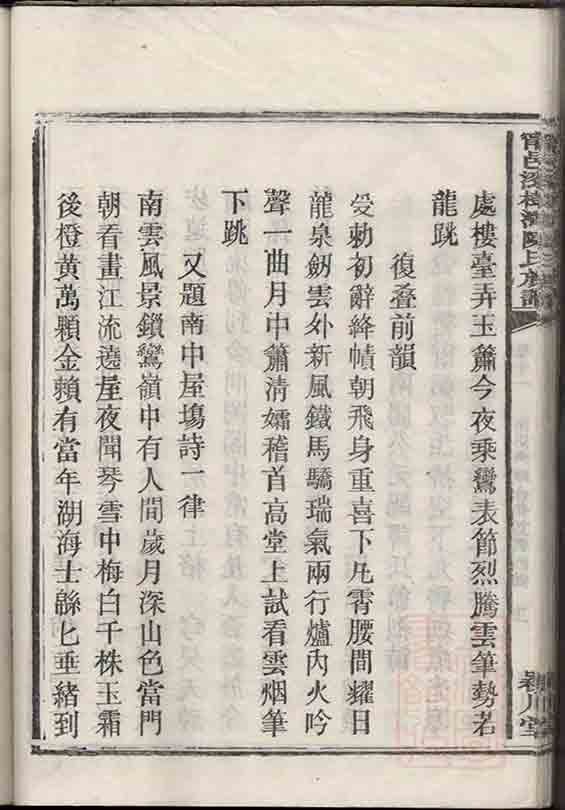 甯邑深柱灣陳氏族譜
處樓臺弄玉簫今夜乘鸞表節烈騰雲筆勢若
龍跳
復叠前韻
受勅初辭絳幘朝飛身重喜下九霄腰間耀日
龍泉劒雲外新風鐵馬驕瑞氣兩行爐內火吟
聲一曲月中簫清孀稽首高堂上試看雲烟筆
下跳
又題南中屋塲詩一律
南雲風景鎖鸞嶺中有人間歲月深山色當門
朝看畫江流遶屋夜聞琴雪中梅白千株玉霜
後橙黃萬顆金賴有當年湖海士緜七垂緒到